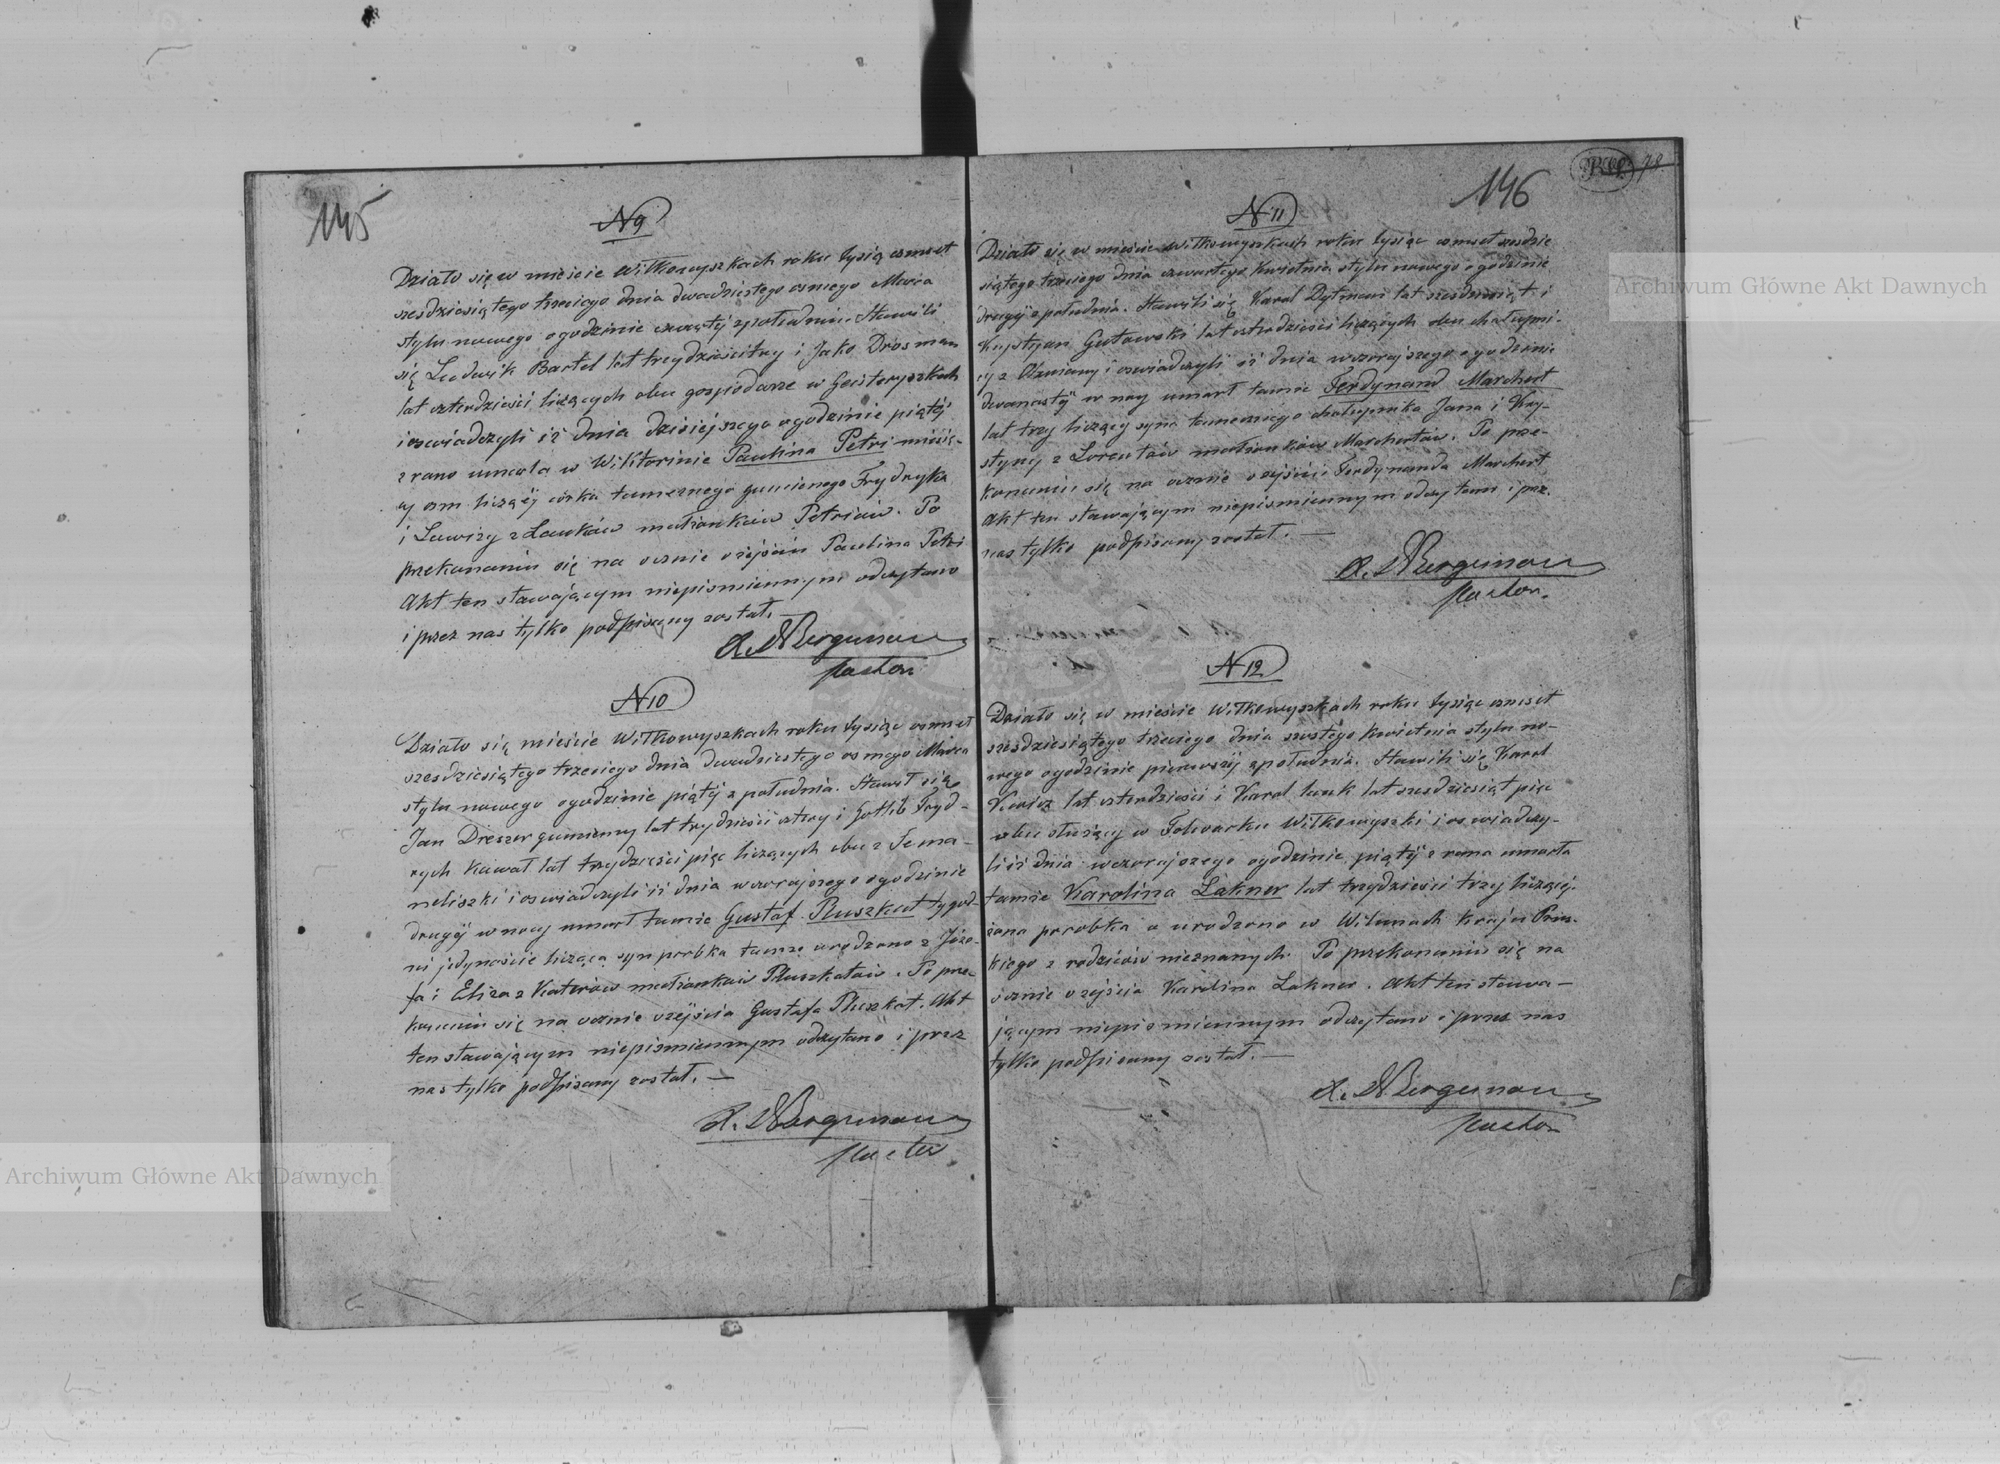 145
N 9
Działo się w mieście Wiłkowyszkach roku tysiąc osmset
szesdziesiątego trzeciego dnia dwudziestego osmego Marca
stylu nowego o godzinie czwartej z południa. Stawili
się Ludwik Bartel lat trzydzieści trzy i Jako Drosman
lat czterdzieści liczących obu gospodarze w
i oswiadczyli iż dnia dzisiejszego o godzinie piątej
z rana umarła w Wiktorinie Paulina Petri miesię-
cy osm licząćej córka tamecznego gumienego Frydryka
i Luwizy z Lauków małżonków Petriów. Po
przekonaniu się na ocznie o zejściu Paulina Petri
Akt ten stawającym niepismiennym odczytano
i przez nas tylko podpisany został.
A. Bergman
Pastor
N 10
Działo się mieście Wiłkowyszkach roku tysiąc osmset
szesdziesiątego trzeciego dnia dwudziestego osmego Marca
stylu nowego o godzinie piątej z południa. Stawił się
Jan Dreszer gumienny lat trzydzieści cztery i Gotlib Fryd-
rych Kawał lat trzydzieści pięc liczących obu z Fema-
neliszki i oswiadczyli iż dnia wczorajszego o godzinie
drugiej w nocy umarł tamże Gustaf Pluszkat tygod-
ni jedynascie liczącą syn probka tamże urodzona z Józe-
fa i Eliza z Katerów małżonków Pluszkatów. Po prze-
konaniu się na ocznie zejścia Gustafa Pluszkat. Akt
ten stawającym niepismiennym odczytano i przez
nas tylko podpisany został. —
A. Bergman
Pastor
146
78
N 11
Działo się w mieście Wiłkowyszkach roku tysiąc osmset szesdzie
siątego trzeciego dnia czwartego Kwietnia stylu nowego o godzinie
drugiej z południa. Stawili się Karol Dytman lat szesdziesiąt i
Krystjan Gutowski lat czterdzieści liczących obu chałupni-
cy z Oźniany i oswiadczyli iż dnia wczorajszego o godzinie
dwanastej w nocy umarł tamże Ferdynand Marchert
lat trzy liczący syna tamecznego chałupnika Jana i Kry-
styny z Lorentów małżonków Marchertów. Po prze-
konaniu się na ocznie o zejściu Ferdynanda Marchert
Akt ten stawającym niepismiennym odczytano i prze.
nas tylko podpisany został. —
A. Bergman
Pastor.
N 12
Działo się w mieście Wiłkowyszkach roku tysiąc osmset
szesdziesiątego trzeciego dnia szostego kwietnia stylu no-
wego o godzinie pierwszej z południa. Stawili się Karol
lat czterdzieści i Karol Lauk lat szesdziesiąt pięc
obu służący w Folwarku Wiłkowyszki i oswiadczy-
li iż dnia wczorajszego o godzinie piątej z rana umarła
tamże Karolina Lakner lat trzydzieści trzy liczącej.
żona parobka a urodzona w Wilunach kraju Prus-
kiego z rodziców nieznanych. Po przekonaniu się na
ocznie o zejścia Karolina Lakner. Akt ten stawa-
jącym niepismiennym odczytano i przez nas
tylko podpisany został. —
A. Bergman
Pastor
Archiwum Główne Akt Dawnych
Archiwum Główne Akt Dawnych